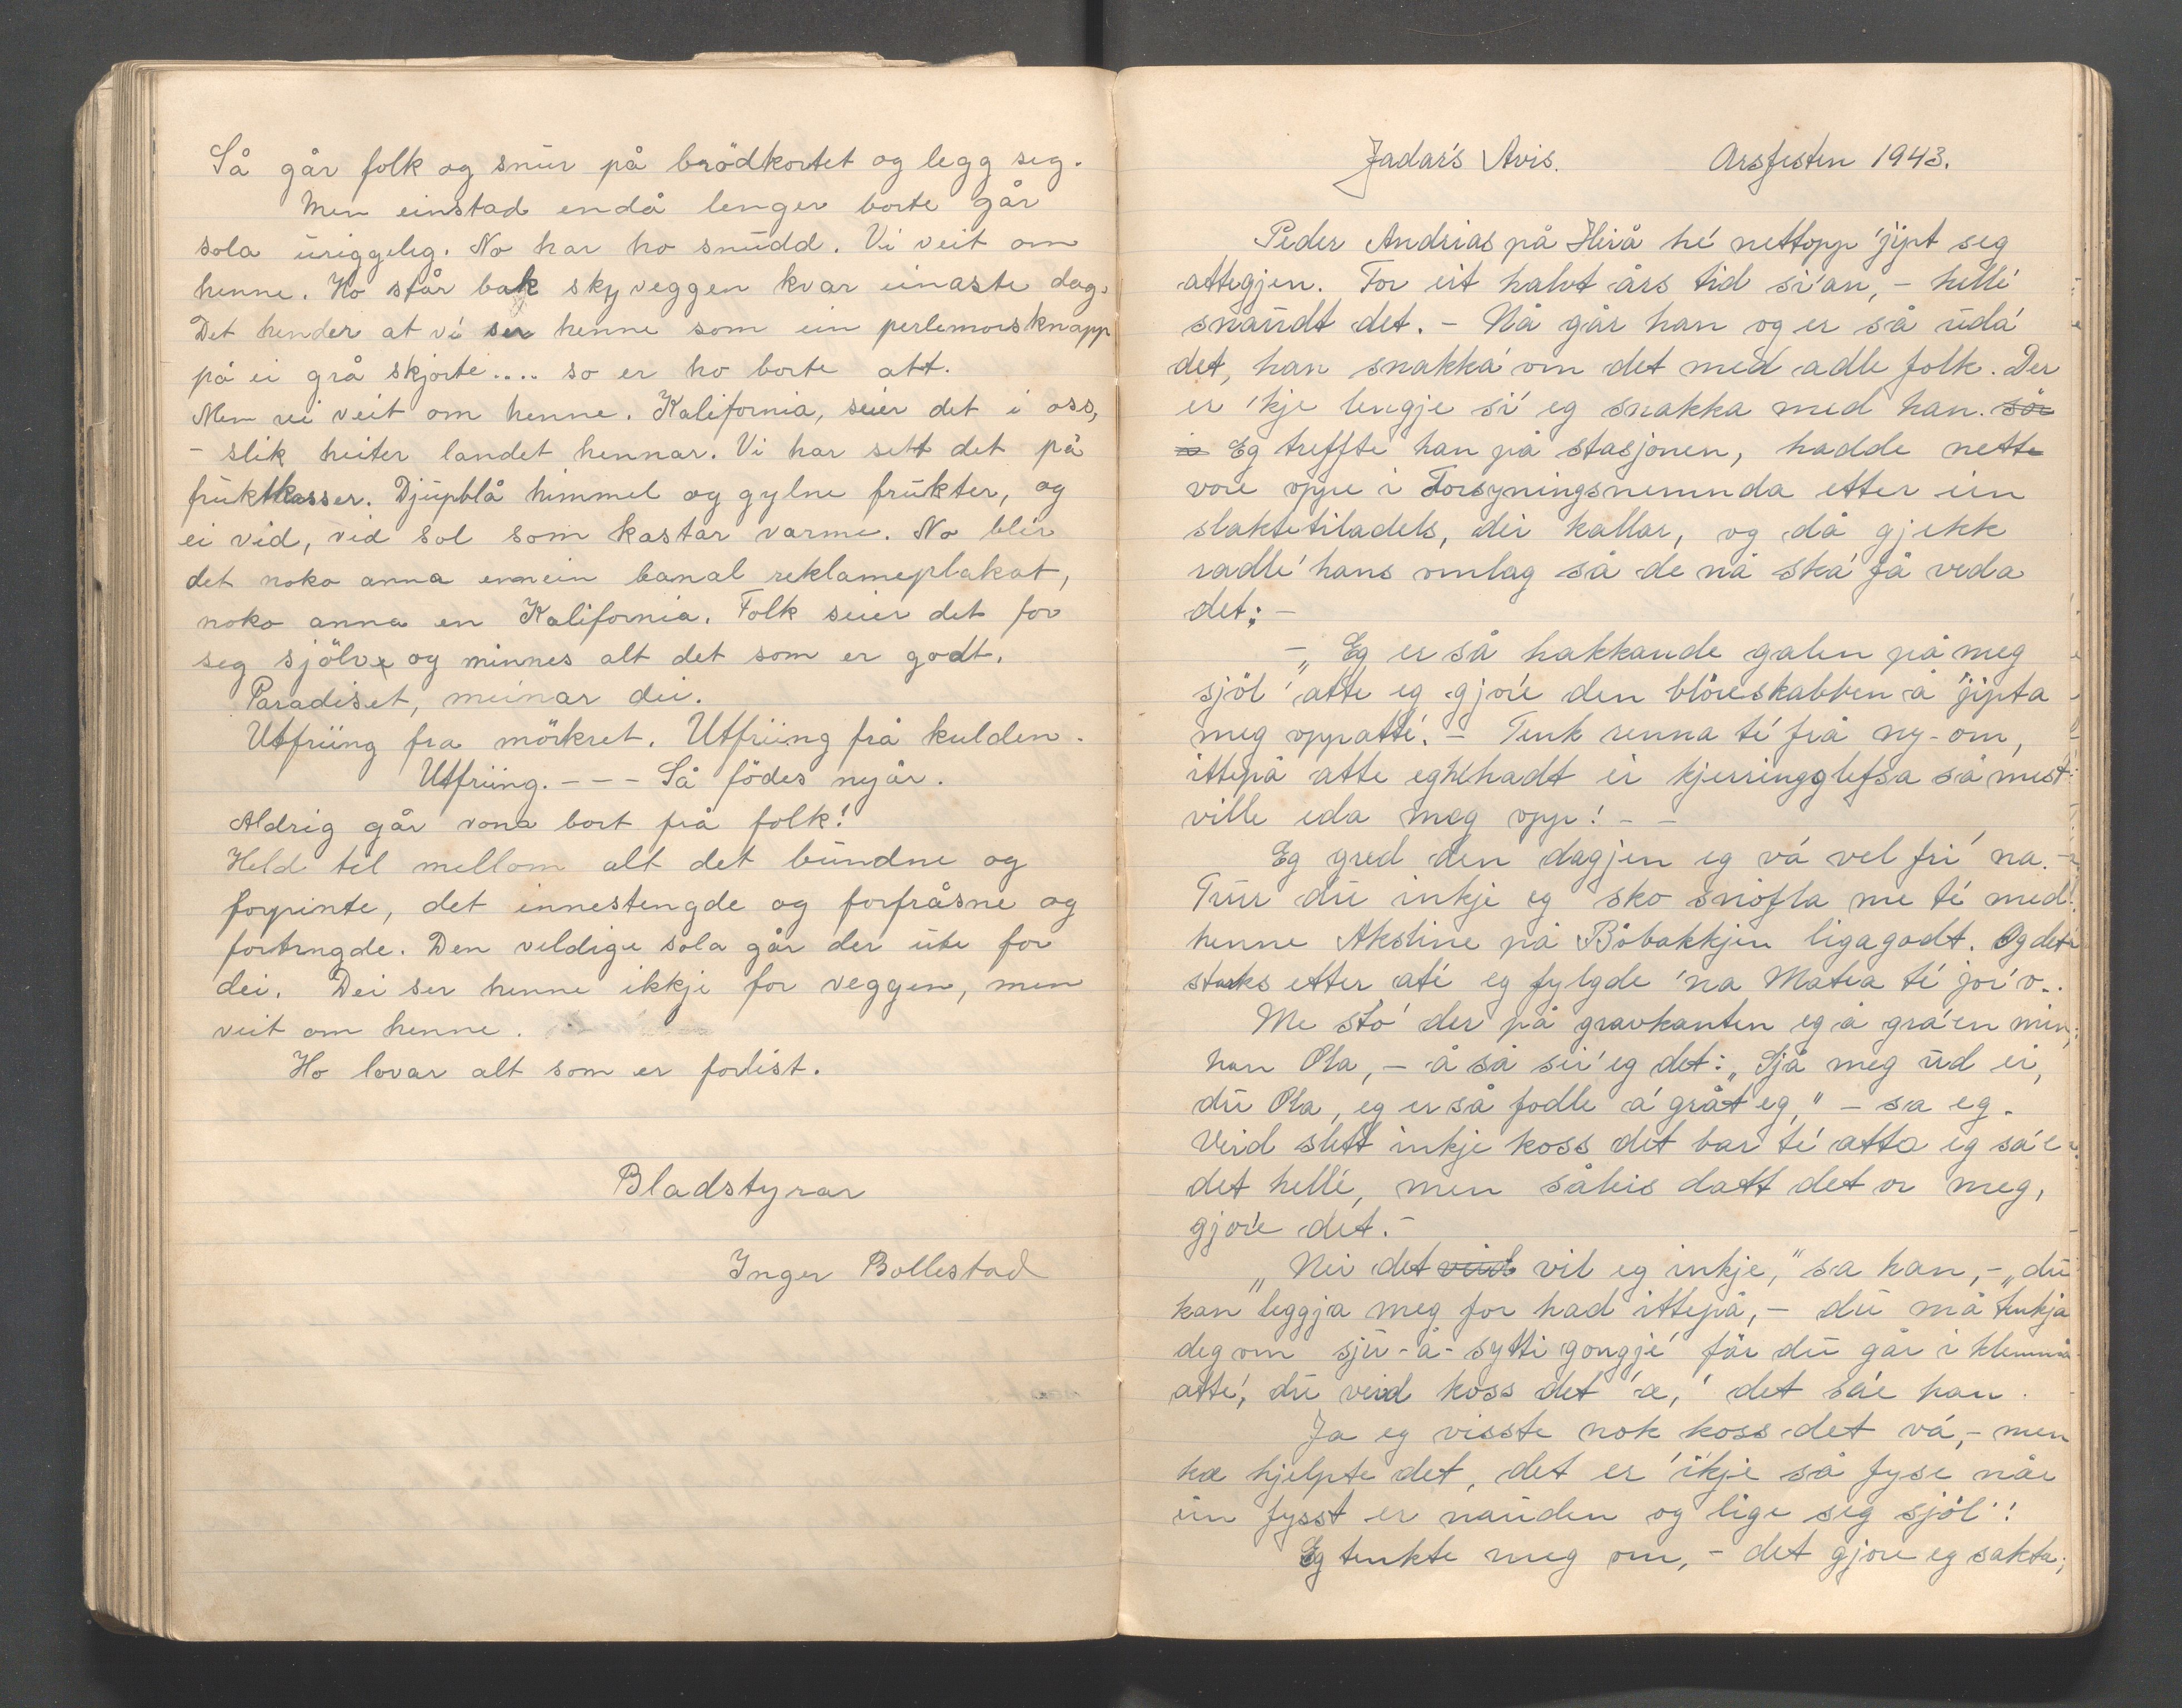 Så går folk og snur på brödkortet og legg seg.
Men einstad endå lenger borte går
sola uriggeleg. No har ho snudd. Vi veit om
henne. Ho står bak skyveggen kvar einaste dag.
Det hender at vi ser henne som ein perlemorsknapp
på ei grå skjorte.... so er ho borte att.
Men vi veit om henne. Kalifornia, seier det i oss,
- slik heiter landet hennar. Vi har sett det på
fruktkasser. Djupblå himmel og gylne frukter, og
ei vid, vid sol som kastar varme. No blir
det noko anna enn ein banal reklameplakat,
noko anna en Kalifornia. Folk seier det for
seg sjölv og minnes alt det som er godt.
Paradiset, meinar dei.
Utfriing fra mörkret. Utfriing frå kulden.
Utfriing. - - - Så födes nyår.
Aldrig går vona bort frå folk!
Held til mellom alt det bundne og
forpinte, det innestengde og forfråsne og
fortrngde. Den veldige sola går der ute for
dei. Dei ser henne ikkje for veggen, men
veit om henne.
Ho lovar alt som er forlist.
Bladstyrar
Inger Bollestad
Jadar's Avis. Årsfesten 1943.
Peder Andrias på Hirå he' nettopp 'jipt seg
attegjen. For eit halvt års tid si'an, - helle'
snaudt det. - Nå går han og er så uda'
det, han snakka' om det med adle folk. Der
er 'kje lengje si' eg snakka med han. så
i Eg treffte han på stasjonen, hadde nette
vore oppe i Forsyningsnemnda etter ein
slaktetiladels, dei kallar, og då gjekk
radle' hans omlag så de nå ska' få veda
det: -
- „Eg er så hakkande galen på meg
sjöl 'atte eg gjor'e den blöreskabben å 'jipta
meg oppatte'. - Tenk renna te' frå ny-om,
ittepå atte eg hehadt ei kjerringglefsa så mest
ville eda meg opp! - -
Eg gred den dagjen eg va' vel fri' na. -
Trur du inkje eg sko snöfla me te' med
henne Akstine på Båbakkjen ligagodt. Og det
straks etter ate' eg fylgde 'na Matea te' jor'o..
Me sto' der på gravkanten eg å gra'en min,
han Ola, - å så sei' eg det: „Sjå meg ud ei,
du Ola, eg er så fodle a' gråt eg," - sa eg.
Veid slett inkje koss det bar te' atta eg sa'e
det helle', men såleis datt det or meg,
gjor'e det. -
„Nei det veid vil eg inkje," sa han, - „du
kan leggja meg for had ittepå, - du må tenkja
deg om sju-å-sytti gongje' får du går i klemmå
atte', du veid koss det 'æ,' det sa'e han.
Ja eg visste nok koss det va', - men
ka hjelpte det, det er 'ikje så fyse når
ein fysst er nauden og lige seg sjöl'!
Eg tenkte meg om, - det gjore eg sakta,